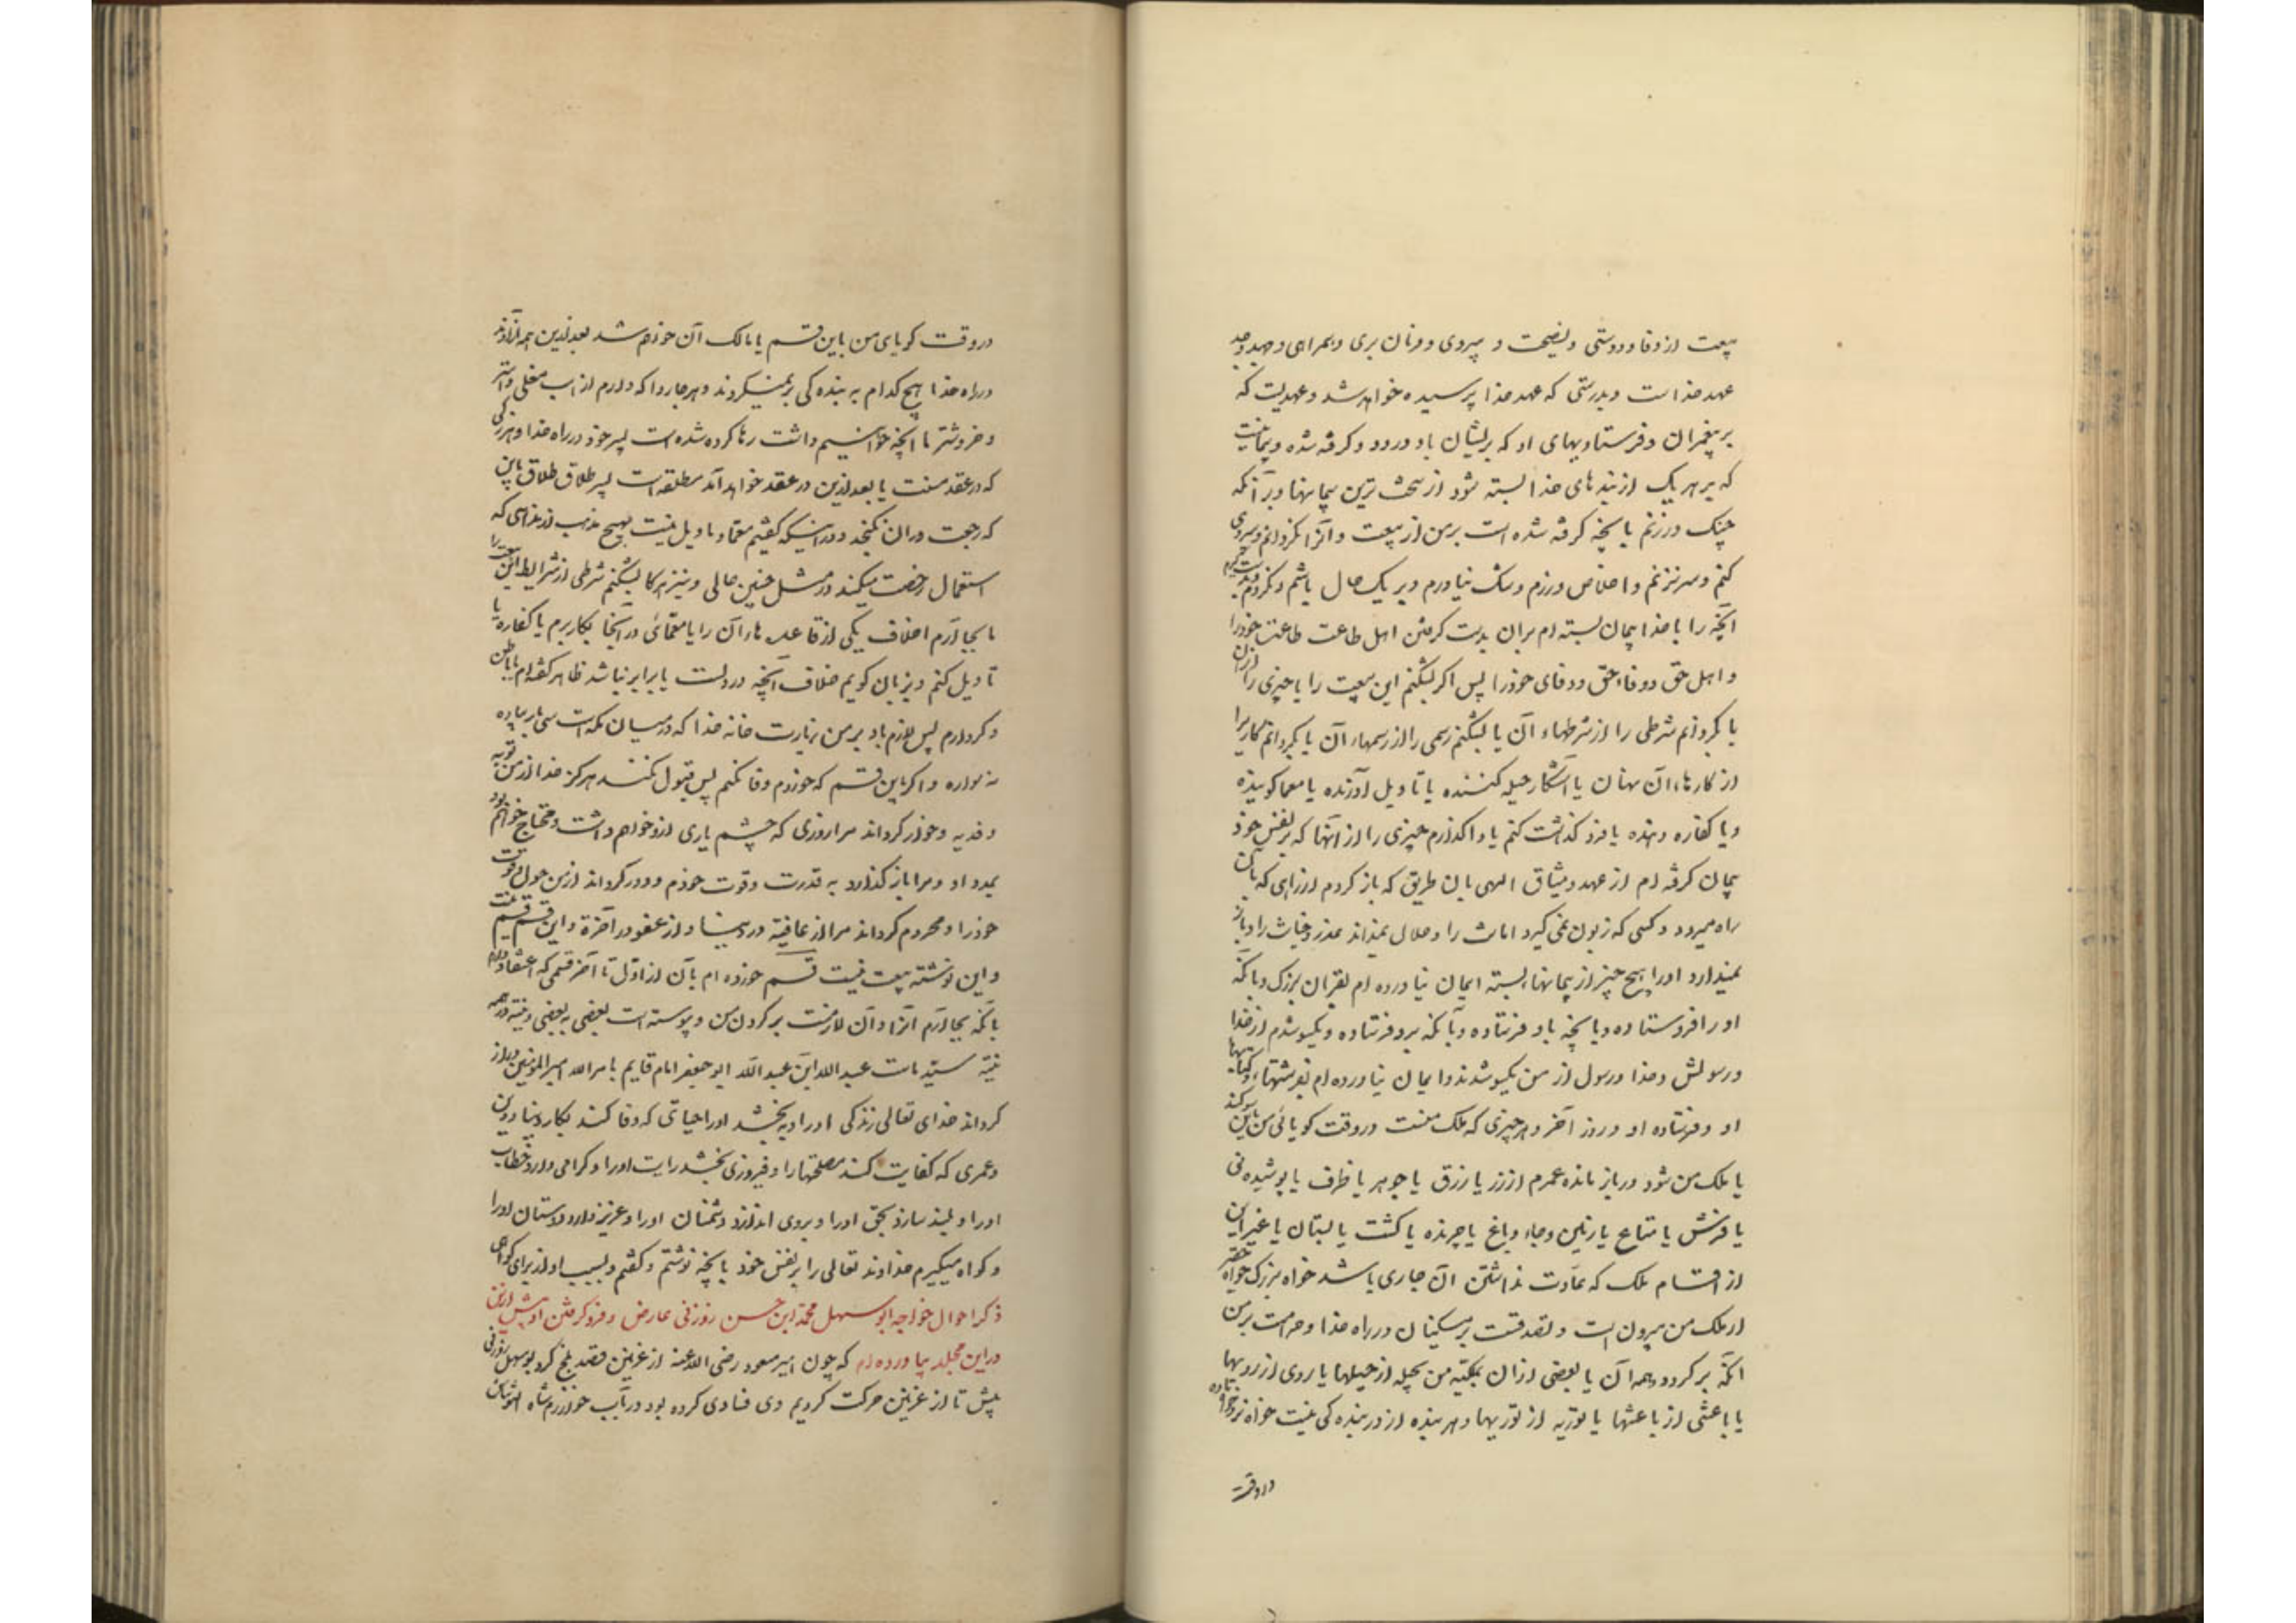 بیعت از وفا و دوستی و نصیحت و پیروی و فرمان بری و همراهی و جهد و جد
عهد خداست و بدرستی که عهد خدا پرسیده خواهد شد و عهدیت که
بر پیغمبران و فرستادیهای او که برایشان باد درود و کرفته شده و پیمانیست
که بر هر یک از بندهای خدا بسته شود از سخت ترین پیمانها و بر آنکه
چنک درزنم بانچه کرفته شده است بر من از بیعت و آنرا نکردانم و پیروی
کنم و سر نزنم و اخلاص ورزم و شک نیاورم و بر یک حال باشم و نکردم
آنچه را با خدا پیمان بسته ام بران بدست کرفتن اهل طاعت طاعت خود را
و اهل حق و وفا، حق و وفای خود را پس اکر بشکنم این بیعت را یا چیزی را ازان
یا بکردانم شرطی را از شرطهاء آن یا بشکنم رسمی را از رسمهاء آن یا بکردانم کاریرا
از کارهاء آن نهان یا آشکار حیله کننده یا تاویل آورنده یا معما کوینده
و یا کفاره دهنده یا فرو کذاشت کنم یا واکذارم چیزی را از آنها که بر نفس خود
پیمان کرفته ام از عهد و میثاق الهی بان طریق که باز کردم از راهی که بآن
راه میرود و کسی که زبون نمی کیرد امانت را و حلال نمیداند عذر و خیانت را و باز
نمیدارد اورا هیچ چیز از پیمانها، بسته ایمان نیاورده ام بقران بزرک و بآنکه
او را فرستاده و بانچه باو فرستاده و بآنکه برو فرستاده و یکسو شدم از خدا
و رسولش و خدا و رسول از من یکسو شدند و ایمان نیاورده ام بفرشتهاء و کتابها
او و فرستاده او و روز آخر و هر چیزی که ملک منست در وقت کویائی من باین سوکند
یا ملک من شود در باز مانده عمرم از زر یا رزق یا جوهر یا ظرف یا پوشیدنی
یا فرش یا متاع یا زمین و جاء و باغ یا چرنده یا کشت یا بستان یا غیر این
از اقسام ملک که عادت نداشتن آن جاری باشد خواه بزرک خواه حقیر
از ملک من بیرون است و تصدقست بر مسکینان در راه خدا و حرامست بر من
آنکه بر کردد همه آن یا بعضی ازان بملکیه من بحیله از حیلها یا روی از رویها
یا باعثی از باعثها یا توریه از توریها و هر بنده از در بنده کی نیست خواه نر خواه ماده
در وقت
در وقت کویای من باین قسم یا مالک آن خواهم شد بعد ازین همه آزادند
در راه خدا هیچ کدام به بنده کی بر نمیکردند و هر چاروا که دارم از اسب مغلی و استر
و خر و شتر یا آنچه خواهیم داشت رها کرده شده است بسر خود در راه خدا و هر زنی
که در عقد منست یا بعد ازین در عقد خواهد آمد مطلقه است بسر طلاق طلاق باین
که رجعت دران نکنجد و در اینکه کفتیم معما و تاویل نیست بهیچ مذهب از مذاهبی که
استعمال رخصت میکند در مثل چنین حالی و نیز هر کاه بشکنم شرطی از شرایط این بیعت را
یا بجا آرم اخلاف یکی از قاعدهاء آن را یا معمائی در آنجا بکار برم یا کفاره یا
تاویل کنم و بزبان کویم خلاف آنچه در دلست یا برابر نباشد ظاهر کفته ام با باطن
و کردارم پس لازم باد بر من زیارت خانه خدا که در میان مکه است سی بار پیاده
نه سواره و اکر باین قسم که خوردم وفا نکنم پس قبول نکند هرکز خدا از من توبه
و فدیه و خوار کرداند مرا روزی که چشم یاری ازو خواهم داشت و محتاج خواهم بود
بمدد او و مرا باز کذارد به قدرت و قوت خودم و دور کرداند از من حول و قوت
خود را و محروم کرداند مرا از عافیة در دنیا و از عفو در آخرة و این قسم قسم منست
و این نوشته بیعت نیست قسم خورده ام بآن از اول تا آخر قسمی که اعتقاد دارم
بآنکه بجا آرم آنرا و آن لازمست بر کردن من و پیوسته است بعضی به بعضی و نیة در همه
نیة سید ماست عبد الله ابن عبد الله ابو جعفر امام قایم بامر الله امیر المؤمنین دراز
کرداند خدای تعالی زندکی او را و به بخشد او را حیاتی که وفا کند بکار دنیا و دین
و عمری که کفایت کند مصلحتها را و فیروزی بخشد رایت او را و کرامی دارد خطاب
او را و بلند سازد بحق او را و بروی اندازد دشمنان او را و عزیز دارد دوستان او را
و کواه میکیرم خداوند تعالی را بر نفس خود بانچه نوشتم و کفتم و بس است او از برای کواهی
ذکر احوال خواجه ابو سهل محمد ابن حسن زوزنی عارض و فرو کرفتن او پیش ازین
در این مجلد بیاورده ام که چون امیر مسعود رضی الله عنه از غزنین قصد بلخ کرد بوسهل زوزنی
پیش تا از غزنین حرکت کردیم وی فسادی کرده بود در باب خوارزمشاه التونتاش